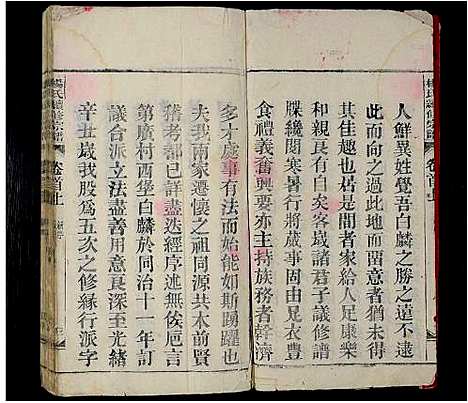 人鮮異姓覺吾白麟之勝之道不遠
此而向之過此地而薾意者猶未得
其佳趣也是間者家給人足康樂
和親良有白矣客歲諸君子議修譜
牒纔閱寒暑行將歲事固由足衣豐
食禮義奮興要亦主持族務者幹濟
多才處事有法而始能如斯踴躍也
夫我兩家遷懷之祖同源共木前賢
稽考都已詳盡迭經序述無俟卮言
第廣村西堡白麟於同治十一年訂
議合派立法盡善用意良深至光緒
辛丑歲我股爲五次之修緣行派字
楊氏續修宗譜
卷首上